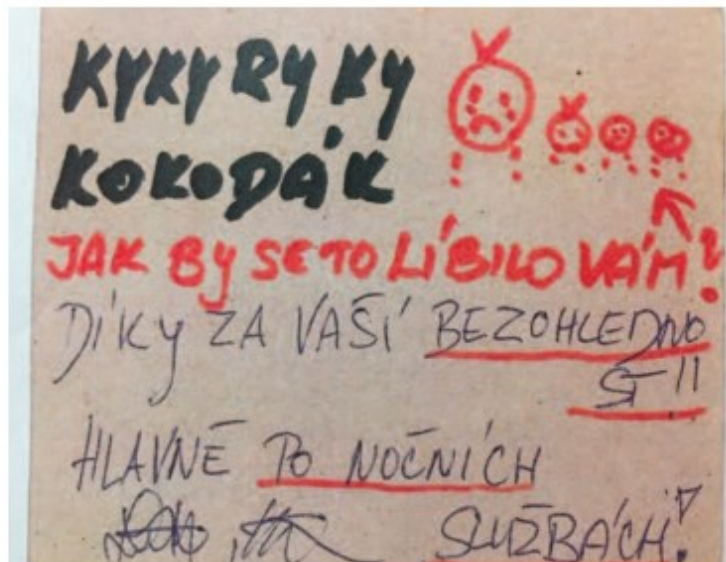 KYKYRYKY
KOKODÁK
JAK BY SE TO LÍBILO VÁM?
DÍKY ZA VAŠÍ BEZOHLEDNO
ST!!
HLAVNĚ PO NOČNÍCH
SLUŽBÁCH!